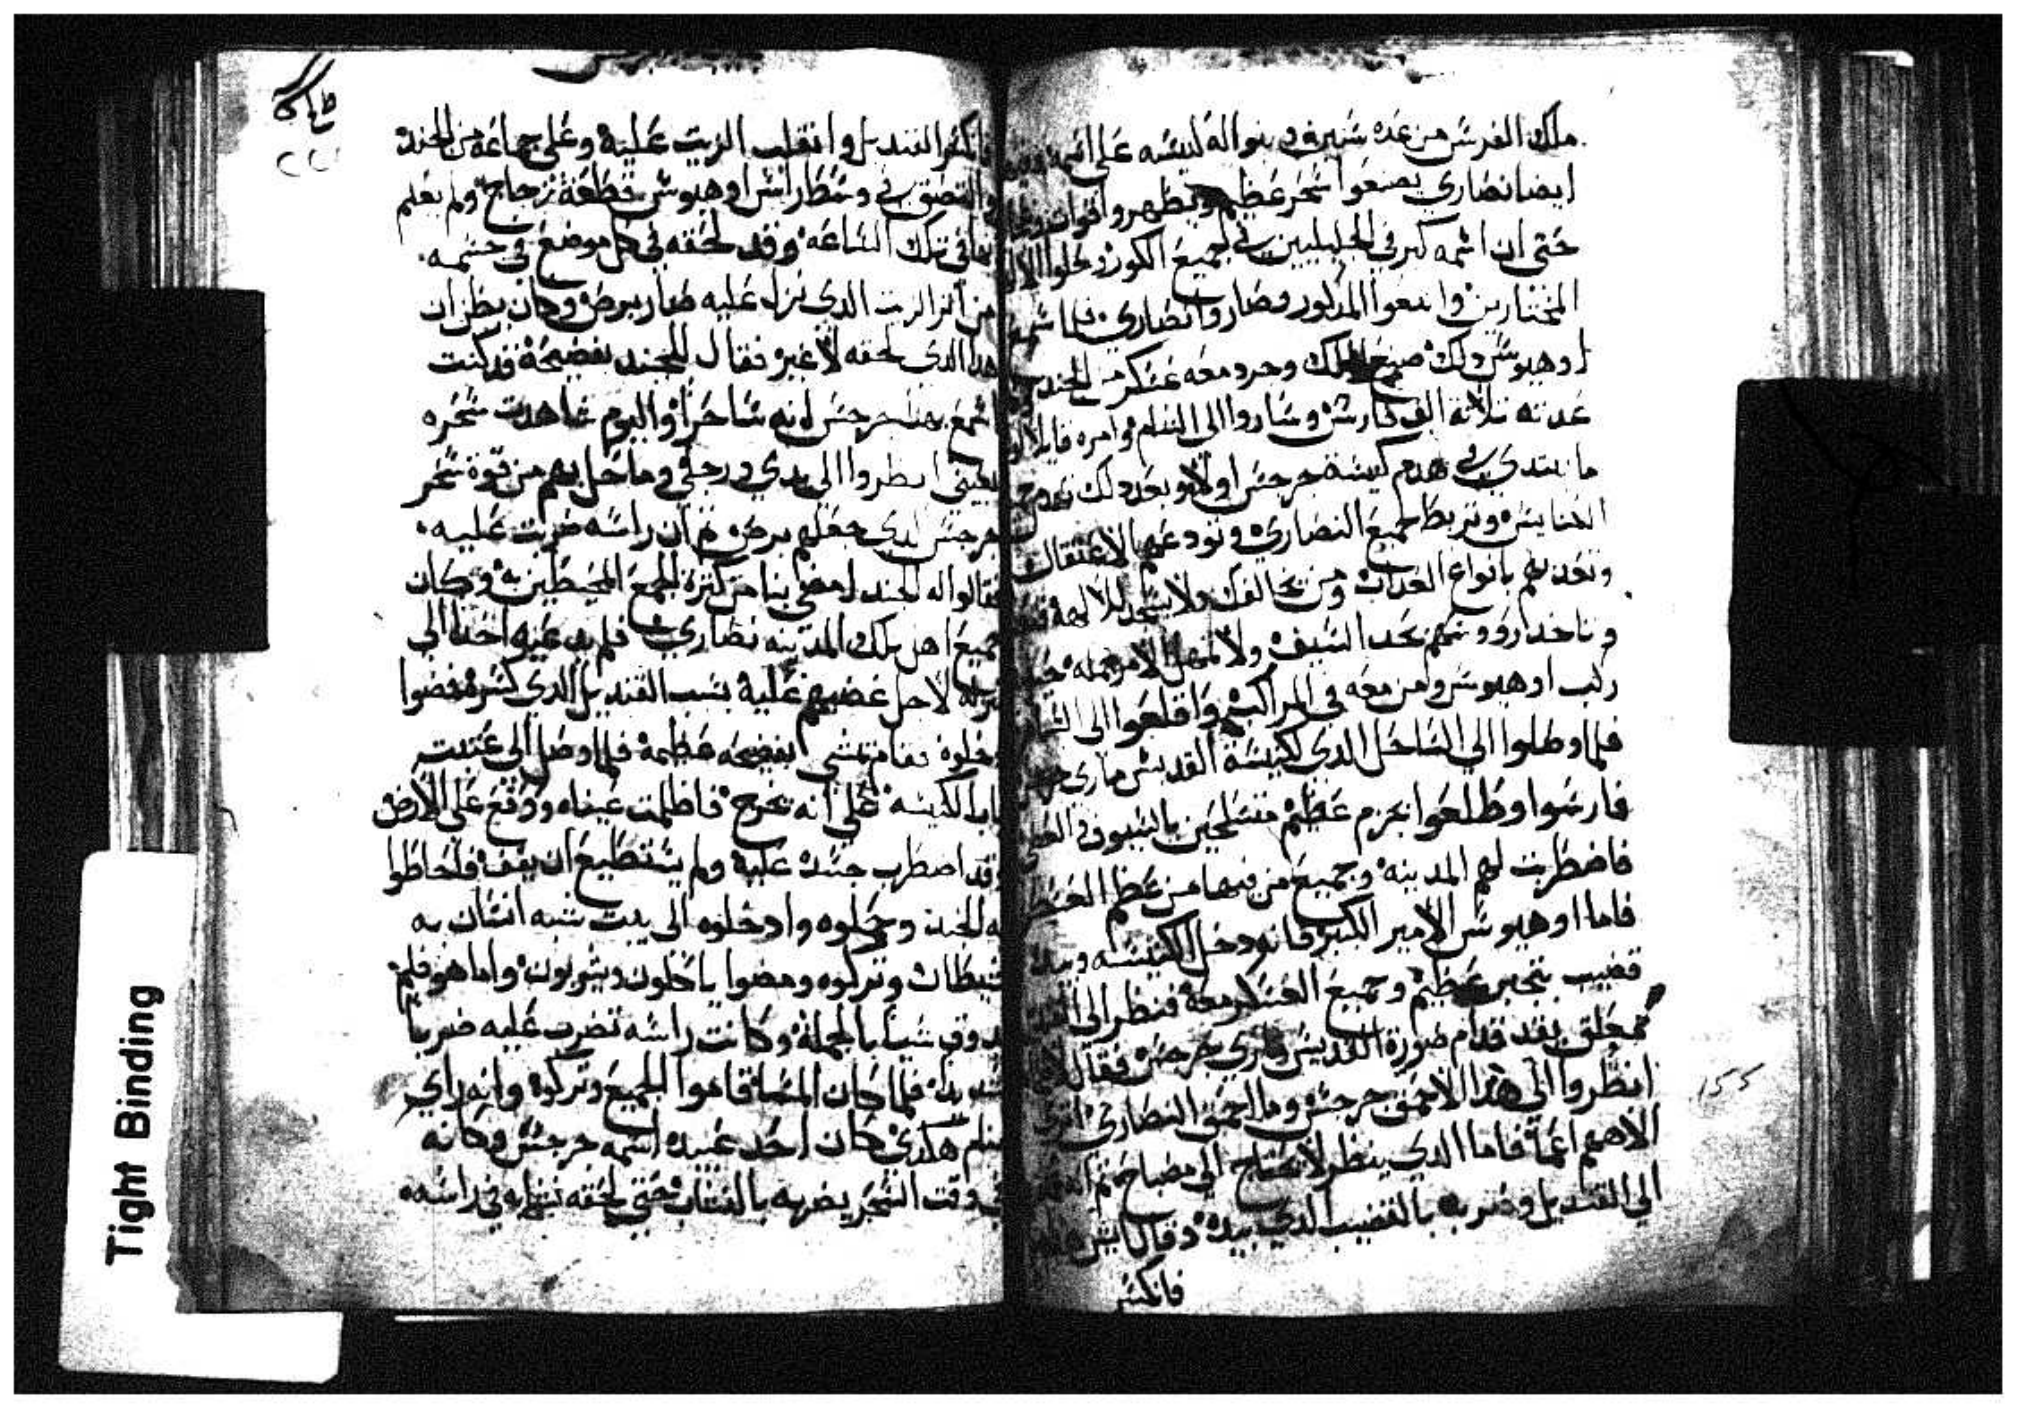 ملك الفرس من عده سنين وبنوا له كنيسه على اسمه
ايضا نصارى يصنعوا سحر عظيم ويظهروا قوات
حتى ان اسمه كبر في الجليليين في جميع الكور وخلوا
المختارين واتبعوا المذكور وصاروا نصارى فلما سمع
اوهيوس ذلك من الملك وجرد معه عسكر من الجند
عدته ثلاثة الف فارس وساروا الى الشام وامره قايلا
ما نبتدي في هدم كنيسة جرجس اولا وبعد ذلك نهدم
الكنايس ونربط جميع النصارى ونودعهم الاعتقال
ونعذبهم بانواع العذاب ومن يخالفك ولا يسجد للالهة
وناخد اروسهم بحد السيف ولا تمهل الامر جمله
ركب اوهيوس ومن معه في المراكب واقلعوا الى الشام
فلما وصلوا الى الساحل الذى لكنيسة القديس ماري
فارسوا وطلعوا بعزم عظيم متسلحين بالسيوف
فاضطربت لهم المدينه وجميع من فيها من عظم
فاما اوهيوس الامير الكبير فانه دخل الكنيسه وبيده
قضيب بتجبر عظيم وجميع العسكر معه فنظر الى
معلق يقد قدام صورة القديس ماري جرجس فقال
انظروا الى هذا الاحمق جرجس وما احمق النصارى
الاههم اعما فاما الدي ينظر لا يحتاج الى مصباح ثم
الى القنديل وضربه بالقضيب الدي بيده وقال ايش
فانكسر
155
فانكسر القنديل وانقلب الزيت عليه وعلى جماعه من الجند
والتصق في وسط راس اوهيوس قطعة زجاج ولم يعلم
بها في تلك الساعه وقد لحقه في كل موضع في جسمه
من اثر الزيت الدى نزل عليه طار برص وكان يظن ان
هدا الدى لحقه لا غير فقال للجند بفضيحة قد كنت
اسمع بهدا جرجس انه ساحرا واليوم شاهدت سحره
بعيني انظروا الى يدي ورجلي وما حل بهم من قوة سحر
جرجس الدي جعلهم برص ثم ان راسه ضربت عليه
فقالوا له الجند امضي بنا من كثرة الجمع المحيطين به وكان
جميع اهل تلك المدينه نصارى فلم يدعيه احدا الى
منزله لاجل غضبهم عليه بسبب القنديل الدي كسره فمضوا
وخلوه فقام يمشي بفضيحه عظيمة فلما وصل الى عتبت
باب الكنيسه على انه يخرج فاظلمت عيناه ووقع على الارض
وقد اضطرب جسده عليه ولم يستطيع ان يقف فاحاطوا
به الجند وحملوه وادخلوه الى بيت شبه انسان به
شيطان وتركوه ومضوا ياكلون ويشربون واما هو فلم
يدوق شيا بالجملة وكانت راسه تضرب عليه ضربا
شديدا فلما كان المسا قاموا الجميع وتركوه وانه راي
منام هكدى كان احد عبيده اسمه جرجس وكانه
في وقت السحر يضربه بالنشاب حتى لحقه نشابه في راسه